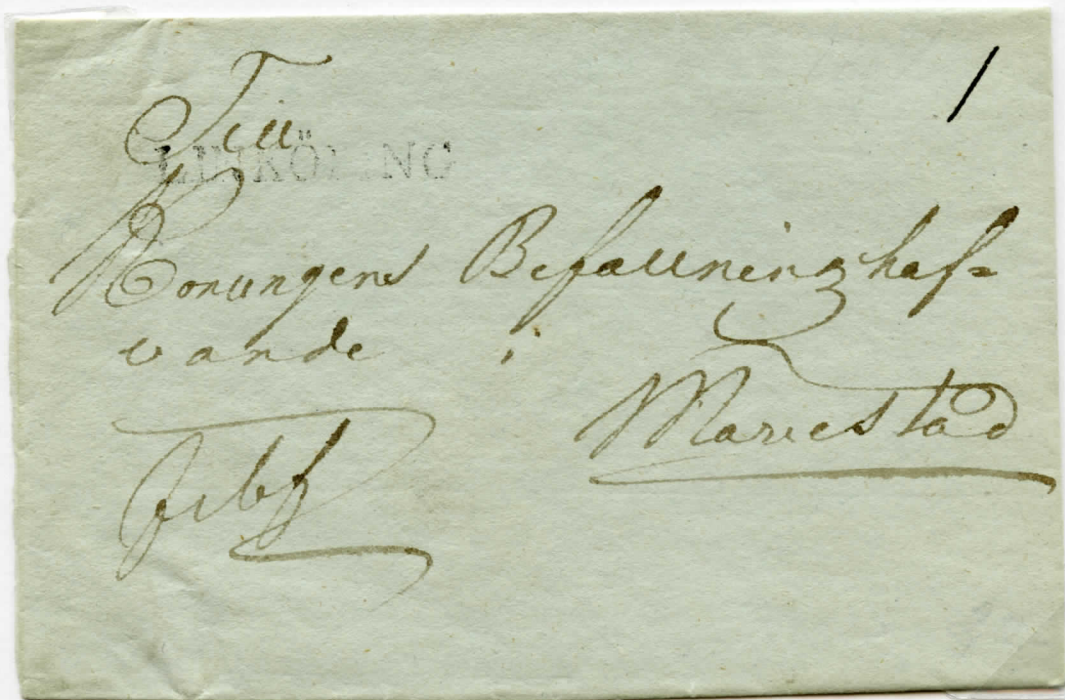 Till
LINKÖPING
Konungens Befallningshaf=
vande i
Mariestad